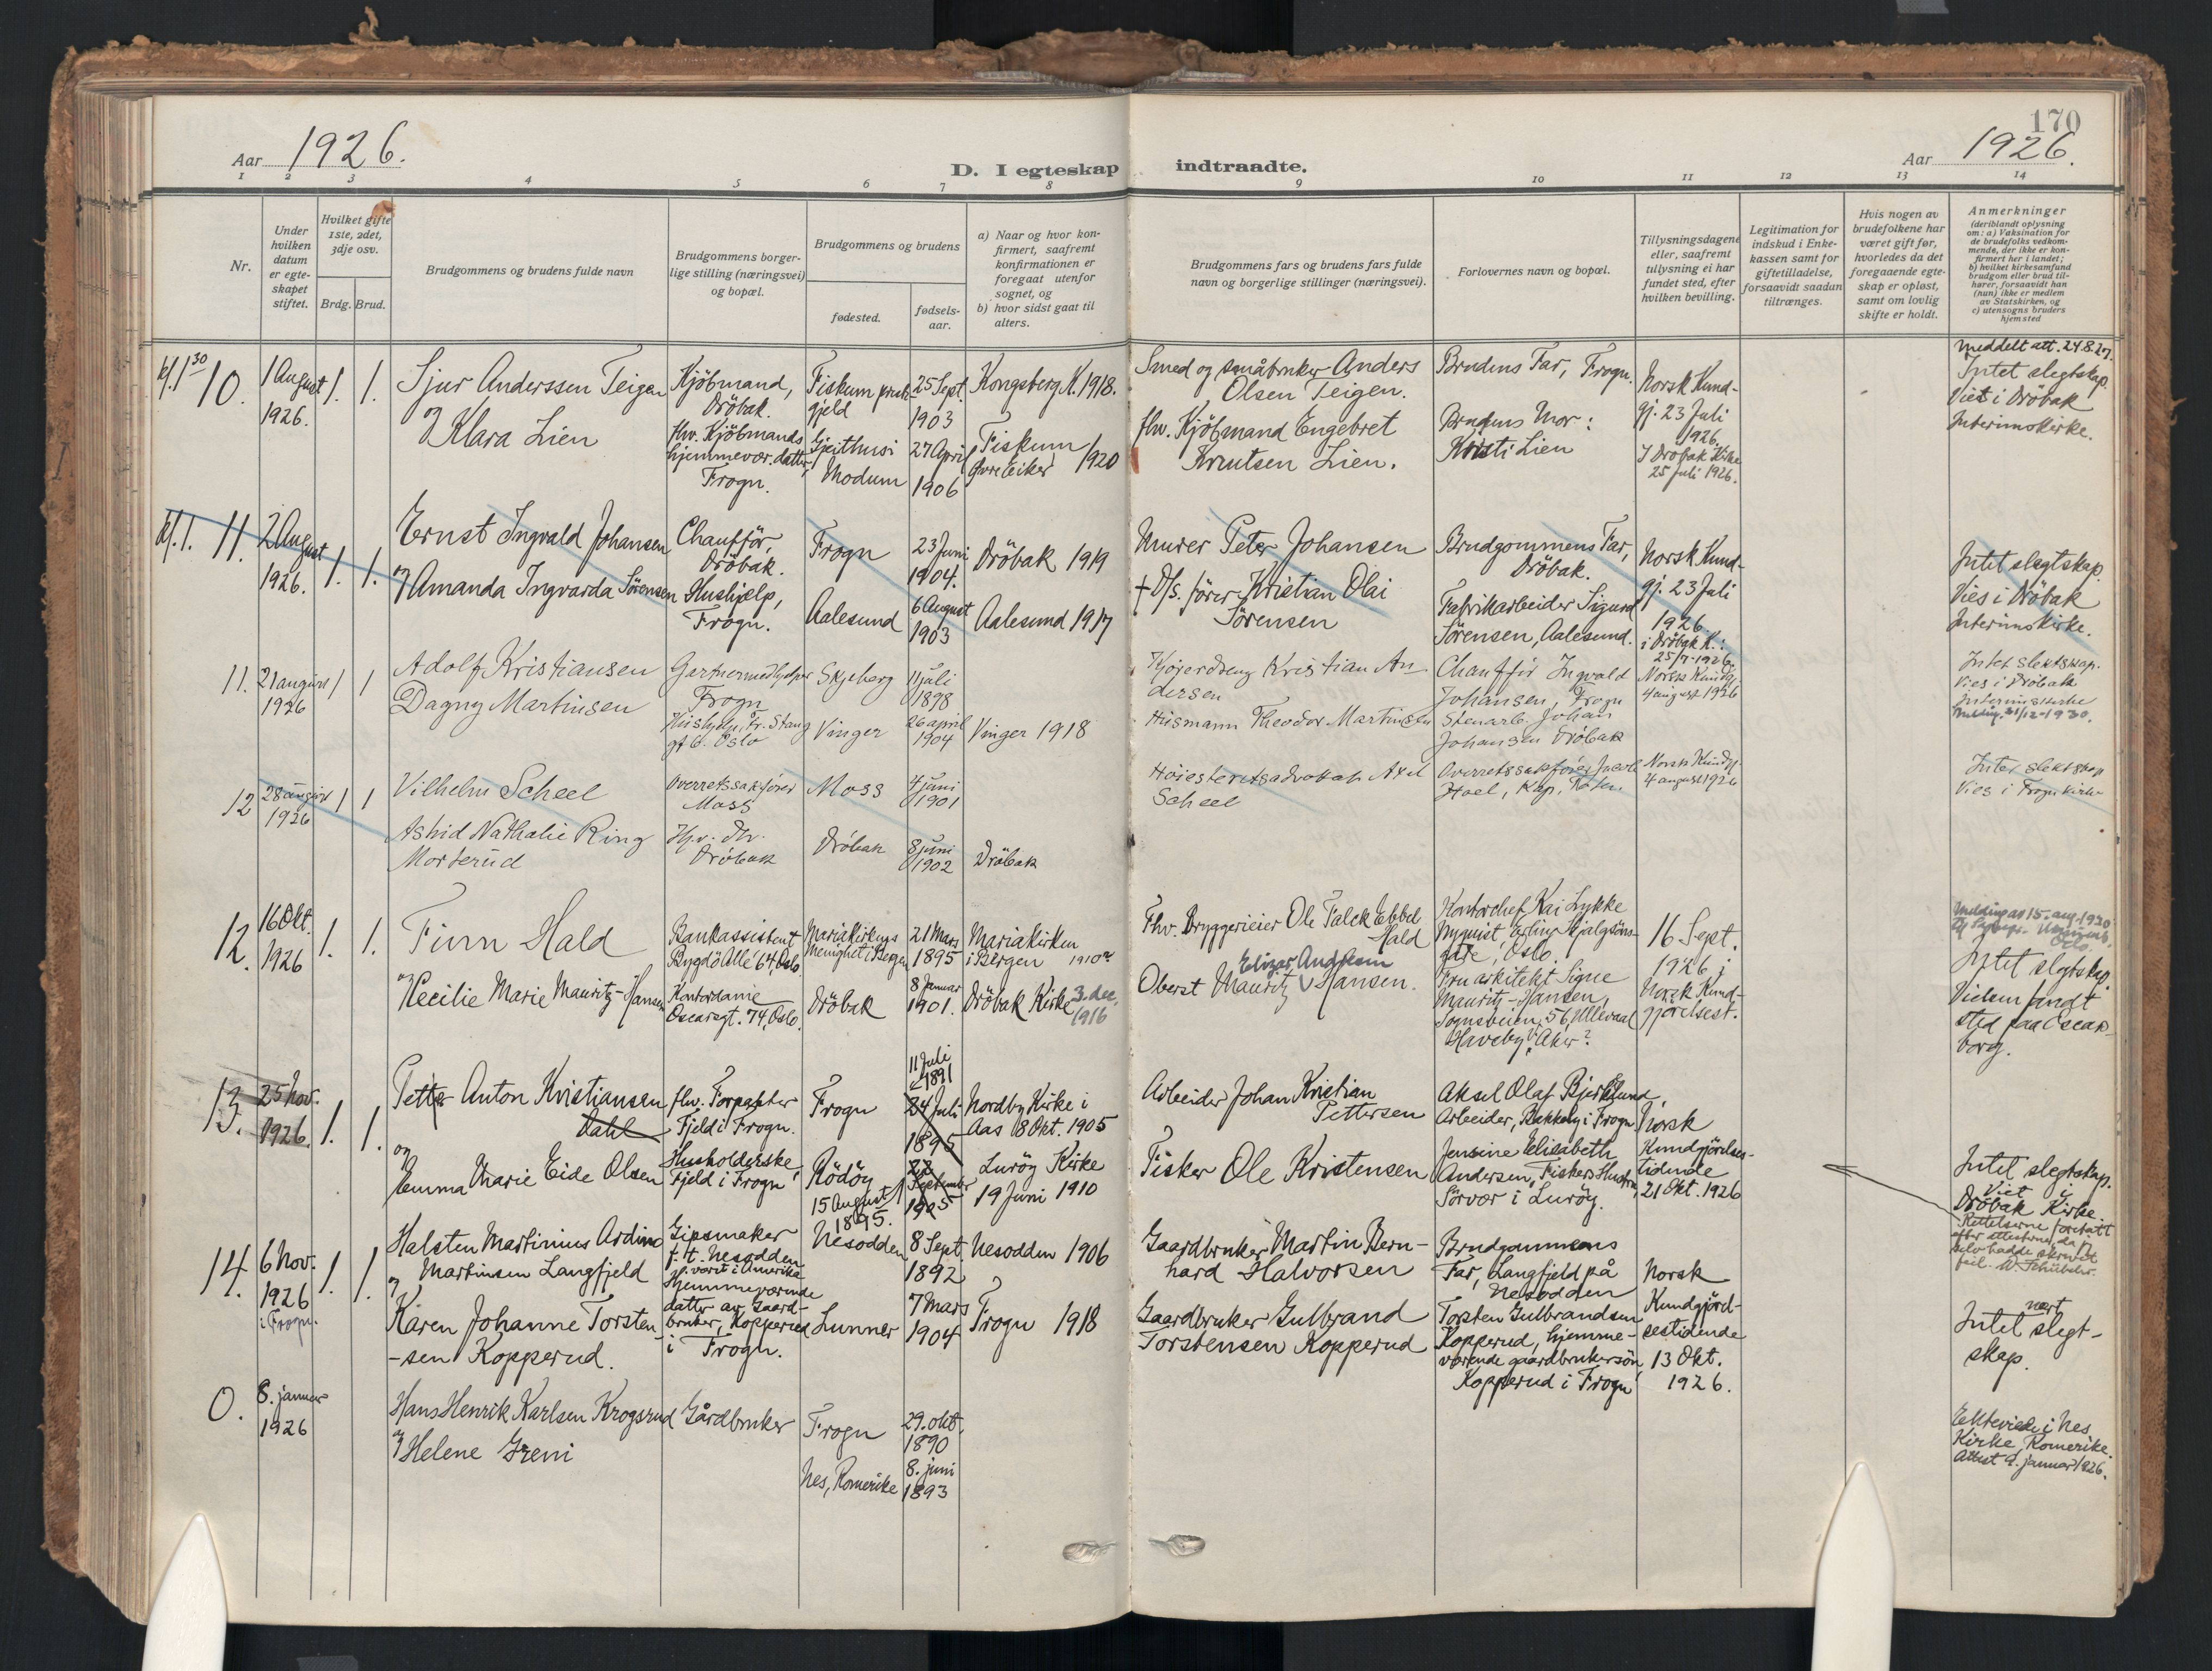 170
Aar 1926.
D. I egteskap indtraadte.
Aar 1926.
1 2 3 4 5 6 7 8 9 10 11 12 13 14
Nr.
Under hvilken datum er egteskapet stiftet.
Hvilket gifte 1ste, 2det, 3dje osv.
Brdg. Brud.
Brudgommens og brudens fulde navn
Brudgommens borgerlige stilling (næringsvei) og bopæl.
Brudgommens og brudens
fødested.
fødselsaar.
a) Naar og hvor konfirmert, saafremt konfirmationen er foregaat utenfor sognet, og
b) hvor sidst gaat til alters.
Brudgommens fars og brudens fars fulde navn og borgerlige stillinger (næringsvei).
Forlovernes navn og bopæl.
Tillysningsdagene eller, saafremt tillysning ei har fundet sted, efter hvilken bevilling.
Legitimation for indskud i Enkekassen samt for giftetilladelse, forsaavidt saadan tiltrænges.
Hvis nogen av brudefolkene har været gift før, hvorledes da det foregaaende egteskap er opløst, samt om lovlig skifte er holdt.
Anmerkninger
(deriblandt oplysning om: a) Vaksination for de brudefolks vedkommende, der ikke er konfirmert her i landet; b) hvilket kirkesamfund brudgom eller brud tilhører, forsaavidt han (hun) ikke er medlem av Statskirken, og c) utensogns bruders hjemsted
kl. 1 30 10.
1 August 1926.
1. 1.
Sjur Anderssen Teigen
og Klara Lien
Kjöbmand, Dröbak.
fhv. Kjöbmands hjemmevær. datter, Frogn.
Fiskum prestegjeld
Gjeithusi Modum
25 Sept. 1903
27 April 1906
Kongsberg K. 1918.
Fiskum Øvre Eiker 1920
Smed og småbruker Anders Olsen Teigen.
fhv. Kjöbmand Engebret Knutsen Lien.
Brudens Far, Frogn.
Brudens Mor: Kristi Lien
Norsk Kundgj. 23 Juli 1926
I Dröbak Kirke 25 Juli 1926.
Meddelt att. 24.8.27.
Intet slegtskap.
Viet i Dröbak
Interimskirke.
kl. 1. 11.
2 August 1926.
1. 1.
Ernst Ingvald Johansen
og Amanda Ingvarda Sörensen
Chaufför, Dröbak.
Hushjelp, Frogn.
Frogn
Aalesund
23 Juni 1904.
6 August 1903
Dröbak 1919
Aalesund 1917
Murer Peter Johansen
† D/s. förer Kristian Olai Sörensen
Brudgommens Far, Dröbak.
Fabrikarbeider Sigurd Sörensen, Aalesund.
Norsk Kundgj. 23 Juli 1926
i Dröbak K.: 25/7-1926.
Intet slegtskap.
Vies i Dröbak
Interimskirke.
11. 21 august 1926
1 1
Adolf Kristiansen
Dagny Martinsen
Gartnermedhjelper Frogn
Hushjelp, Fr. Stang gt 6. Oslo
Skjeberg
Vinger
11 juli 1898
26 april 1904
Vinger 1918
Kjøredreng Kristian Andersen
Husmann Theodor Martinsen
Chauffør Ingvald Johansen, Frogn
Stenarb. Johan Johansen Dröbak
Norsk Kundgj. 4 august 1926
Intet slektskap.
Vies i Drøbak
Interimskirke
Melding. 21/12-1930.
12 28 august 1926
1 1
Vilhelm Scheel
Astrid Nathalie Ring Morterud
Overretssakfører Moss
Hjv. dtr. Drøbak
Moss
Drøbak
4 juni 1901
8 juni 1902
Drøbak
Høiesteretsadvokat Axel Scheel
Norsk Kundgj. 4 august 1926
Intet slektskap
Vies i Frogn kirke
12. 16 Okt. 1926
1. 1.
Finn Hald
og Cecilie Marie Mauritz-Hansen
Bankassistent Bygdö Allé 64 Oslo
Kontordame Oscarsgt. 74, Oslo.
Mariakirkens Menighet i Bergen
Dröbak
21 Mars 1895
8 Januar 1901.
Mariakirken i Bergen 1910
Dröbak Kirke 3. dec. 1916
Fhv. Bryggerieier Ole Falck Ebbel Hald
Oberst Mauritz Elizar Andksen Hansen.
Kontorchef Kai Lykke Nyquist, Erling Skjalgsönsgate, Oslo.
Fru arkitekt Signe Mauritz-Hansen, Sognsveien 56, Ullevaal Haveby, V. Aker.
16 Sept. 1926 i Norsk Kundgjörelsest.
Intet slegtskap.
Vielsen fandt sted paa Oscarborg.
13. 25 Nov. 1926.
1. 1.
Petter Anton Kristiansen Dahl
og Emma Marie Eide Olsen
fhv. Forpakter Fjeld i Frogn.
Husholderske Fjeld i Frogn
Frogn
Rödöy
11 Juli 1891
24 Juli 1895
22 September 1905
15 August 1895.
Nordby Kirke i Aas 8 Okt. 1905
Luröy Kirke 19 Juni 1910
Arbeider Johan Kristian Pettersen
Fisker Ole Kristensen
Aksel Olaf Bjerkelund, Arbeider, Bakkely i Frogn
Jensine Elisabeth Andersen, Fiskers Hustru, Sörvær i Luröy.
Norsk Kundgjörelsestidende 21 Okt. 1926
Intet slegtskap.
Viet i Dröbak Kirke.
Rettelserne foretatt efter attesterne, da De selv hadde skrevet feil. W. Schübeler.
14. 6 Nov. 1926 i Frogn.
1. 1.
Halsten Martinius Ardin Martinsen Langfjeld
og Karen Johanne Torstensen Kopperud.
Gipsmaker f. t. Nesodden, været i Amerika
Hjemmeværende datter av Gaardbruker, Kopperud i Frogn.
Nesodden
Lunner
8 Sept 1892
7 Mars 1904
Nesodden 1906
Frogn 1918
Gaardbruker Martin Bernhard Halvorsen
Gaardbruker Gulbrand Torstensen Kopperud
Brudgommens Far, Langfjeld på Nesodden
Torsten Gulbrandsen Kopperud, hjemmeværende gaardbrukersön, Kopperud i Frogn
Norsk Kundgjörelsestidende 13 Okt. 1926.
Intet nært slegtskap.
0. 8. januar 1926
Hans Henrik Karlsen Krogsrud
og Helene Greni
Gårdbruker
Frogn
Nes, Romerike
29. okt. 1890
8. juni 1893
Ektevidd i Nes Kirke, Romerike.
Attest 9. januar 1926.